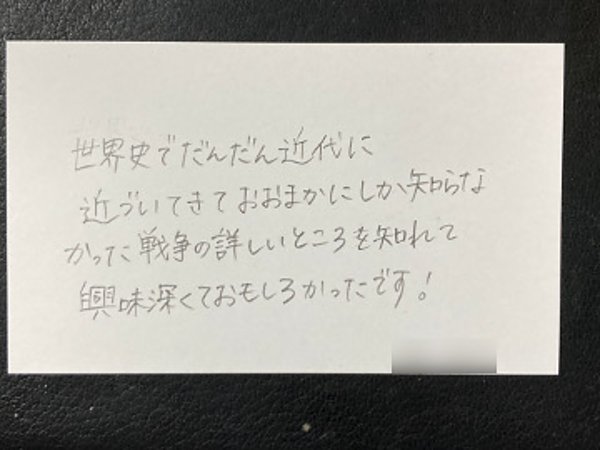 世界史でだんだん近代に
近づいてきておおまかにしか知らな
かった戦争の詳しいところを知れて
興味深くておもしろかったです!